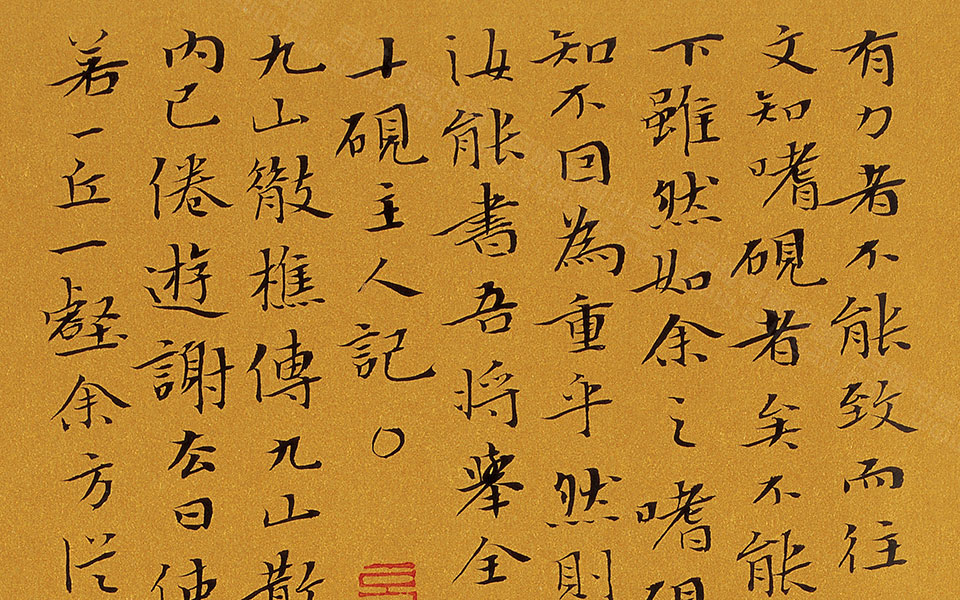 有力者不能致而往
文知嗜硯者矣不能
下雖然如余之嗜硯
知不回為重乎然則
汝能書吾將舉全
十硯主人記○
九山散樵傳九山散
内已倦遊謝去曰使
若一丘一壑余方從